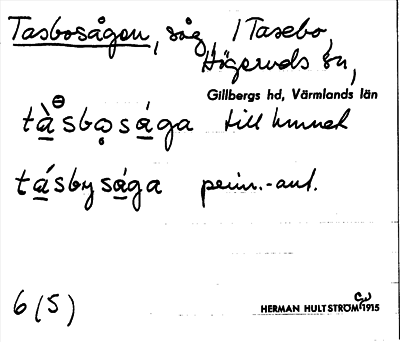 Tasbosågen, såg, i Tasebo,
Högeruds sn,
Gillbergs hd, Värmlands län
tàsbosága till hunnet
tásbysága
6 (5)
HERMAN HULTSTRÖM 1915